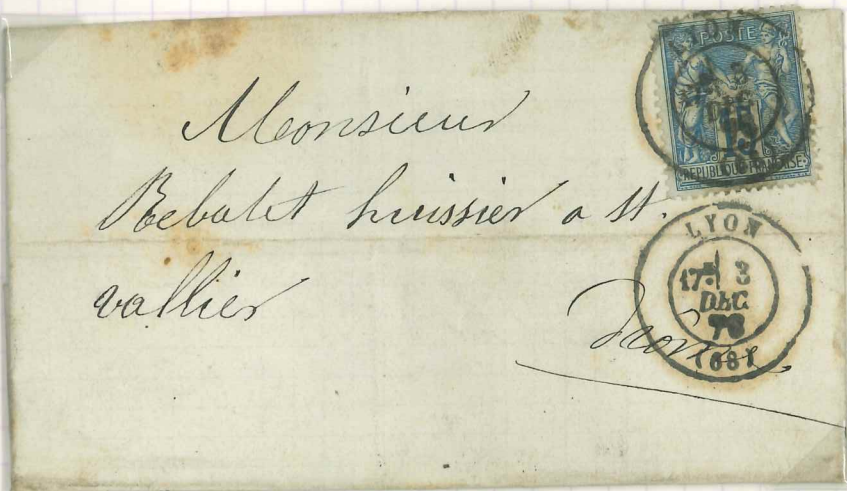 POSTE
3
DEC
15
REPUBLIQUE FRANÇAISE
Monsieur
Rebatet huissier a St.
vallier
Drôme
LYON
17E 3
DEC
78
(68)